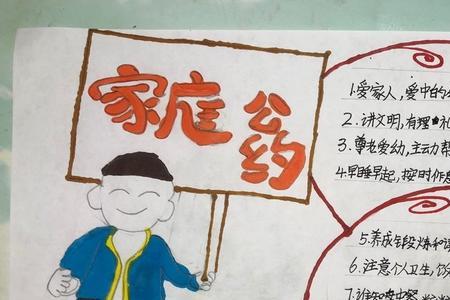 家庭公约
1.爱家人,爱中的
2.讲文明,有理
3.尊老爱幼,主动
4.早睡早起,按时作息
5.养成锻炼和
6.注意个人卫生,饮
7.